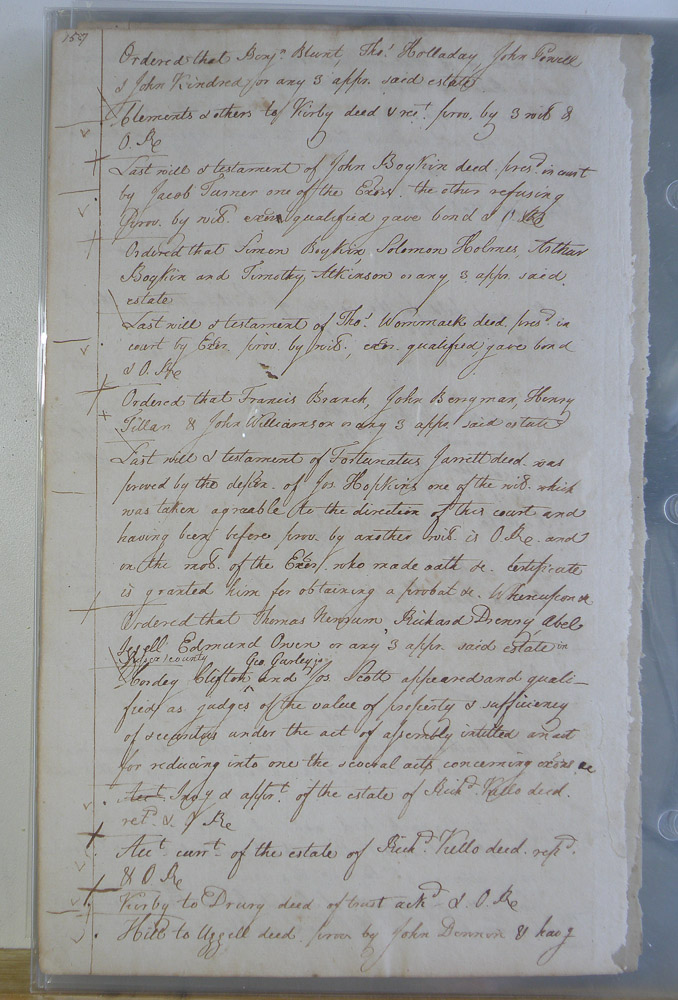 157
Ordered that Benjn. Blunt, Thos. Holladay, John Powell
& John Kindred or any 3 appr. said estate
Clements & others to Kirby deed & rect. prov. by 3 witt &
O. Re
Last will & testament of John Boykin decd. presd. in court
by Jacob Turner one of the Exors. the other refusing
prov. by witt. exor. qualified gave bond & O Re
Ordered that Simon Boykin, Solomon Holmes, Arthur
Boykin and Timothy Atkinson or any 3 appr. said
estate
Last will & testament of Thos. Wommack decd. presd. in
court by Exor. prov. by witt., exor. qualified, gave bond
& O. Re
Ordered that Francis Branch, John Berryman, Henry
Tillar & John Williamson or any 3 appr. said estate
Last will & testament of Fortunatus Jarrett decd. was
proved by the depon. of Jos. Hopkins one of the witt. which
was taken agreable to the direction of this court and
having been before prov. by another witt. is O. Re. and
on the mot. of the Exor. who made oath &c. Certificate
is granted him for obtaining a probat &c. Whereupon
Ordered that Thomas Newsum, Richard Drewry, Abel
Edmund Owen or any 3 appr. said estate in
county
Geo. Gurley
Cordey Clifton and Jos. Scott appeared and quali-
fied as judges of the value of property & sufficiency
of securities under the act of assembly intitled an act
for reducing into one the several acts concerning exons &c
Invy. & apprt. of the estate of Richd. Kello decd.
ret. & O Re
Act. currt. of the estate of Richd. Kello decd. retd.
& O Re
Kirby to Drury deed of trust ackd. & O. Re
Hill to Uzzell deed prov by John Dennon & havg